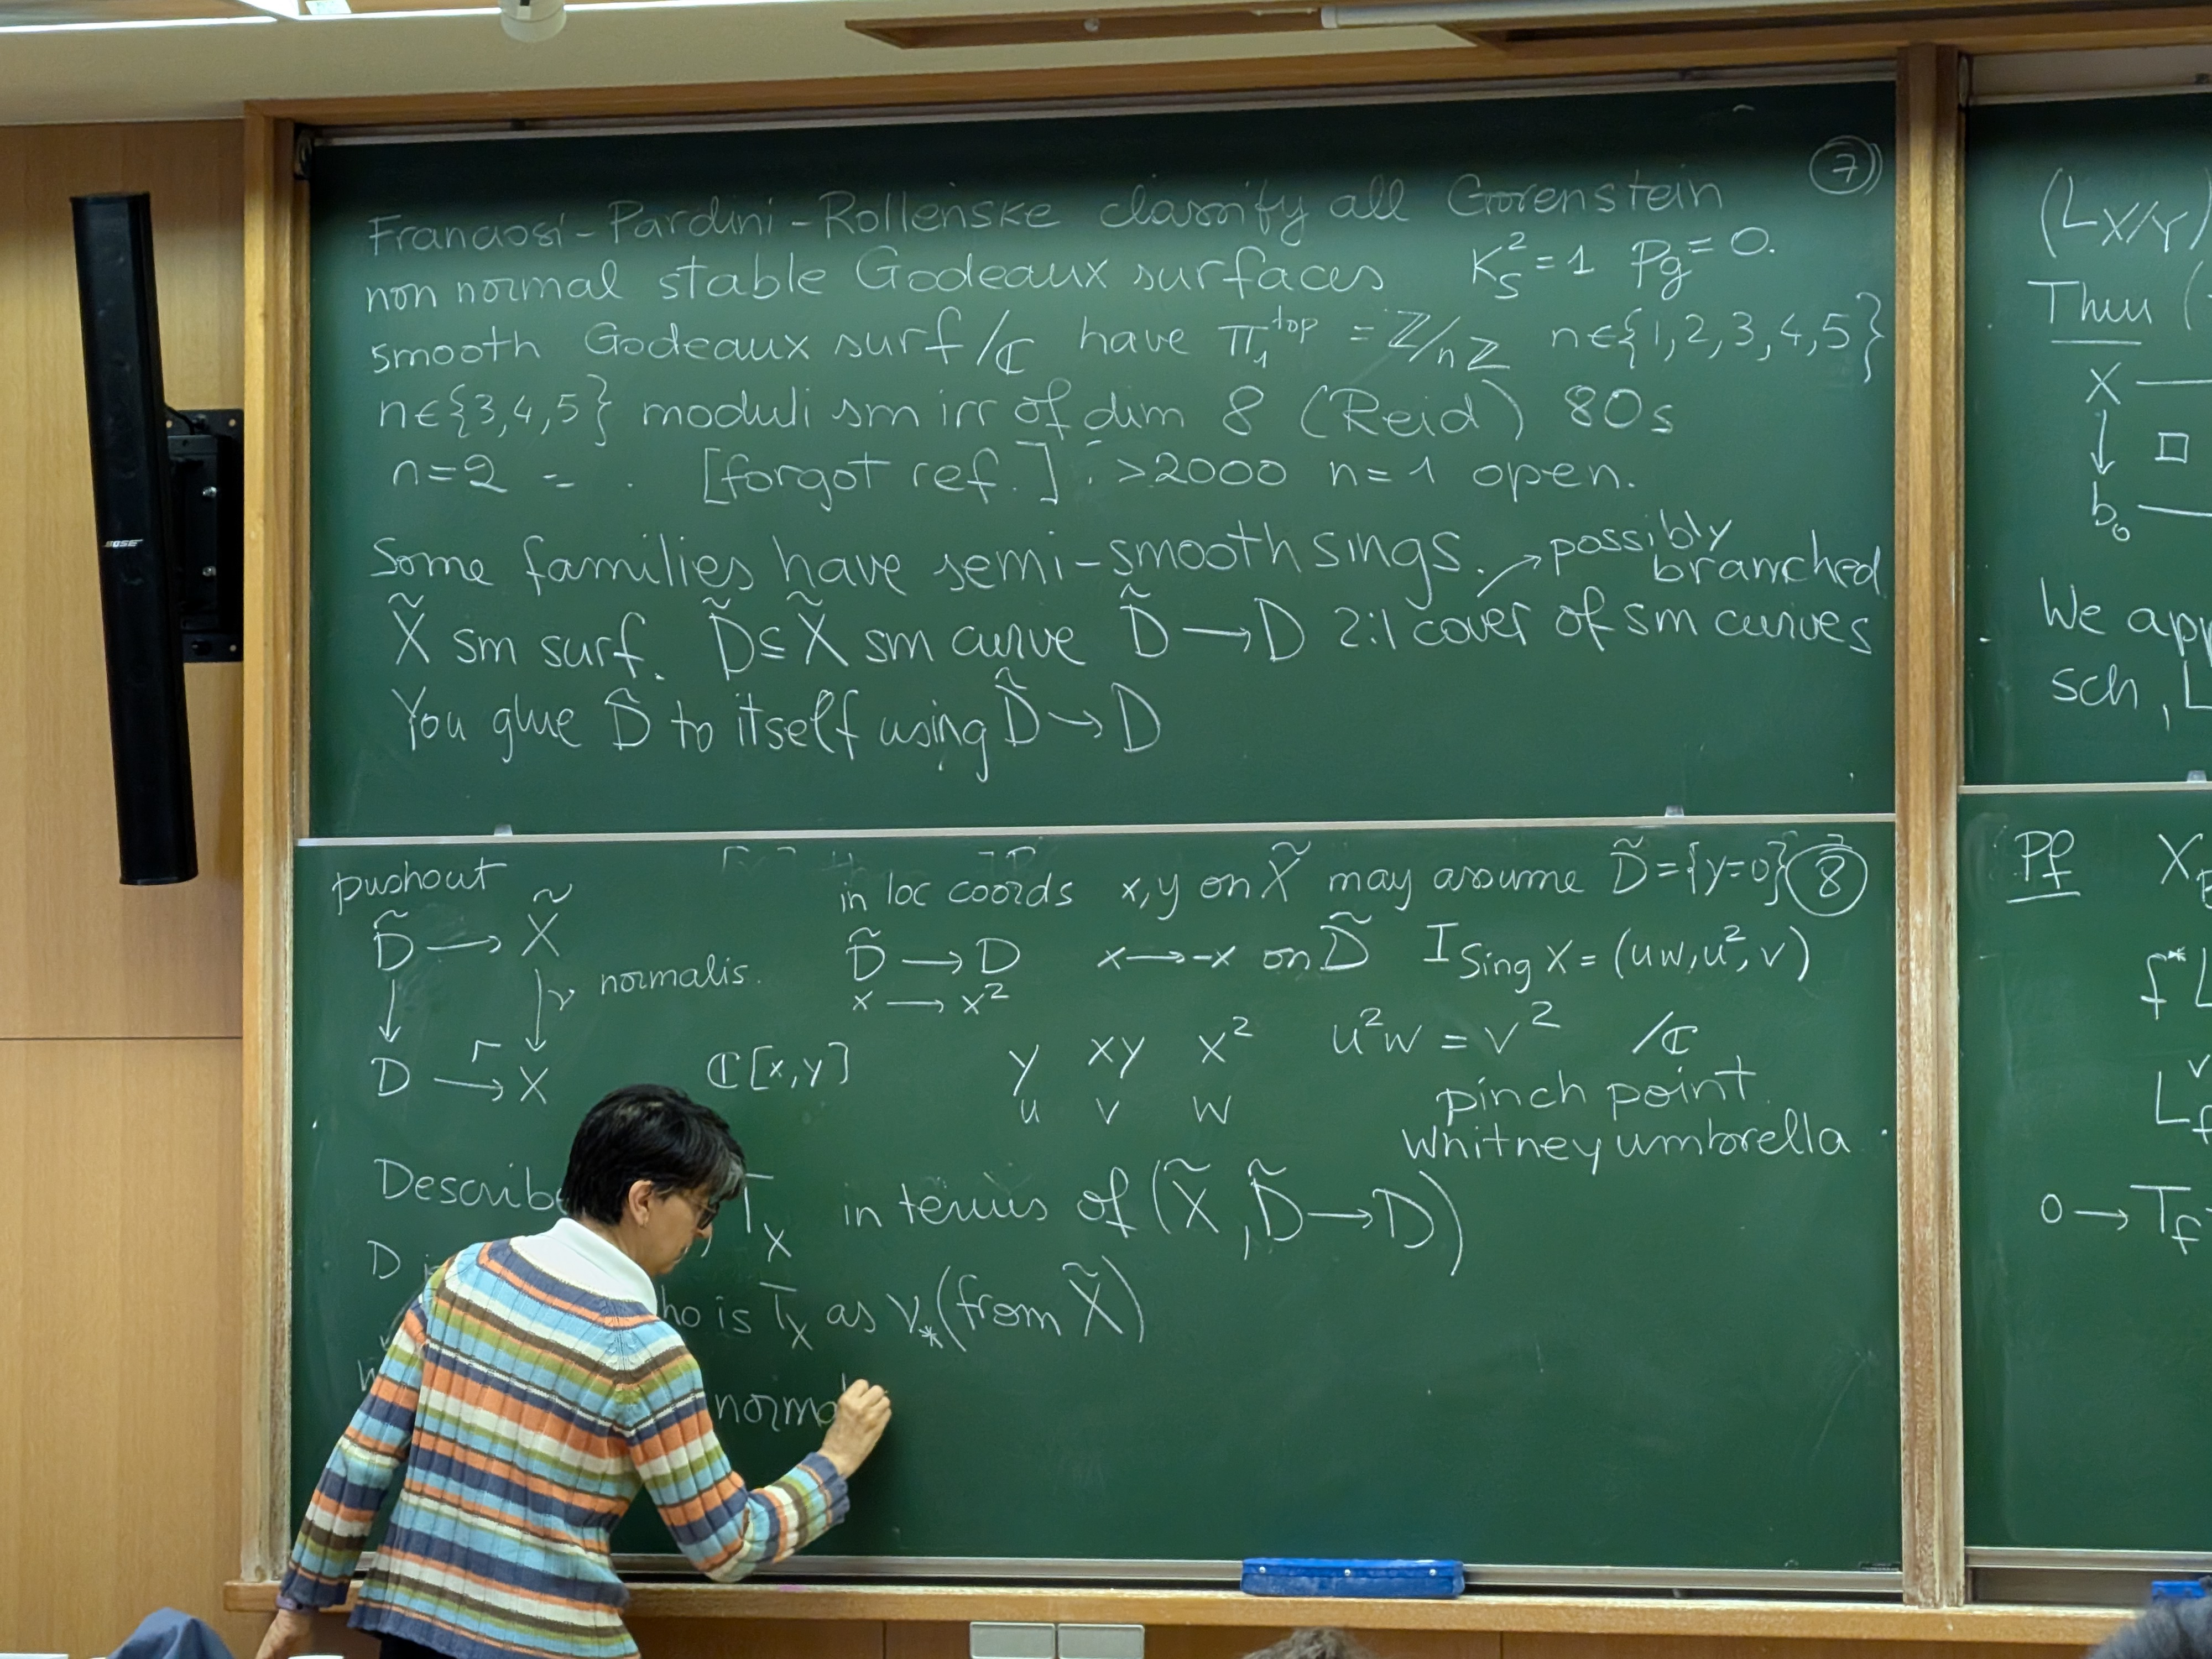 7
Franciosi-Pardini-Rollenske classify all Gorenstein
non normal stable Godeaux surfaces K_S^2=1 Pg=0.
smooth Godeaux surf/ℂ have π_1^top = ℤ/nℤ n∈{1,2,3,4,5}
n∈{3,4,5} moduli sm irr of dim 8 (Reid) 80s
n=2 = . [forgot ref.] >2000 n=1 open.
Some families have semi-smooth sings. → possibly branched
X̃ sm surf. D̃⊆X̃ sm curve D̃→D 2:1 cover of sm curves
You glue D̃ to itself using D̃→D
pushout
D̃ → X̃
↓ ↓ν normalis.
D → X
in loc coords x,y on X̃ may assume D̃={y=0} 8
D̃ → D x→-x on D̃ I_Sing X = (uw,u²,v)
x → x²
ℂ[x,y] y xy x² u²w = v² /ℂ
u v w
pinch point.
Whitney umbrella.
Describe T_X in terms of (X̃, D̃→D)
D
is T_X as ν_*(from X̃)
norma
(L_X/Y)
Thm (
X —
↓ □
b_0 —
We app
sch, L
Pf X
f* L
L_f
0 → T_f
BOSE